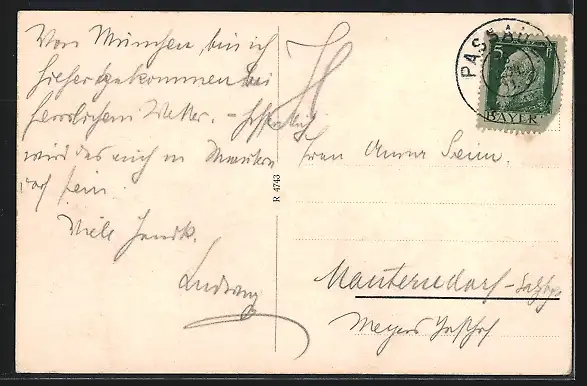 Von München bin ich
hieher gekommen bei
herrlichem Wetter. – Hoffentlich
wird das auch in Mautern
dorf sein.
Viele Handk.
Ludwig
R 4743
PASSAU
5 Pf
BAYERN
Frau Anna
Mauterndorf - Salzbg
Meyers Gasthof